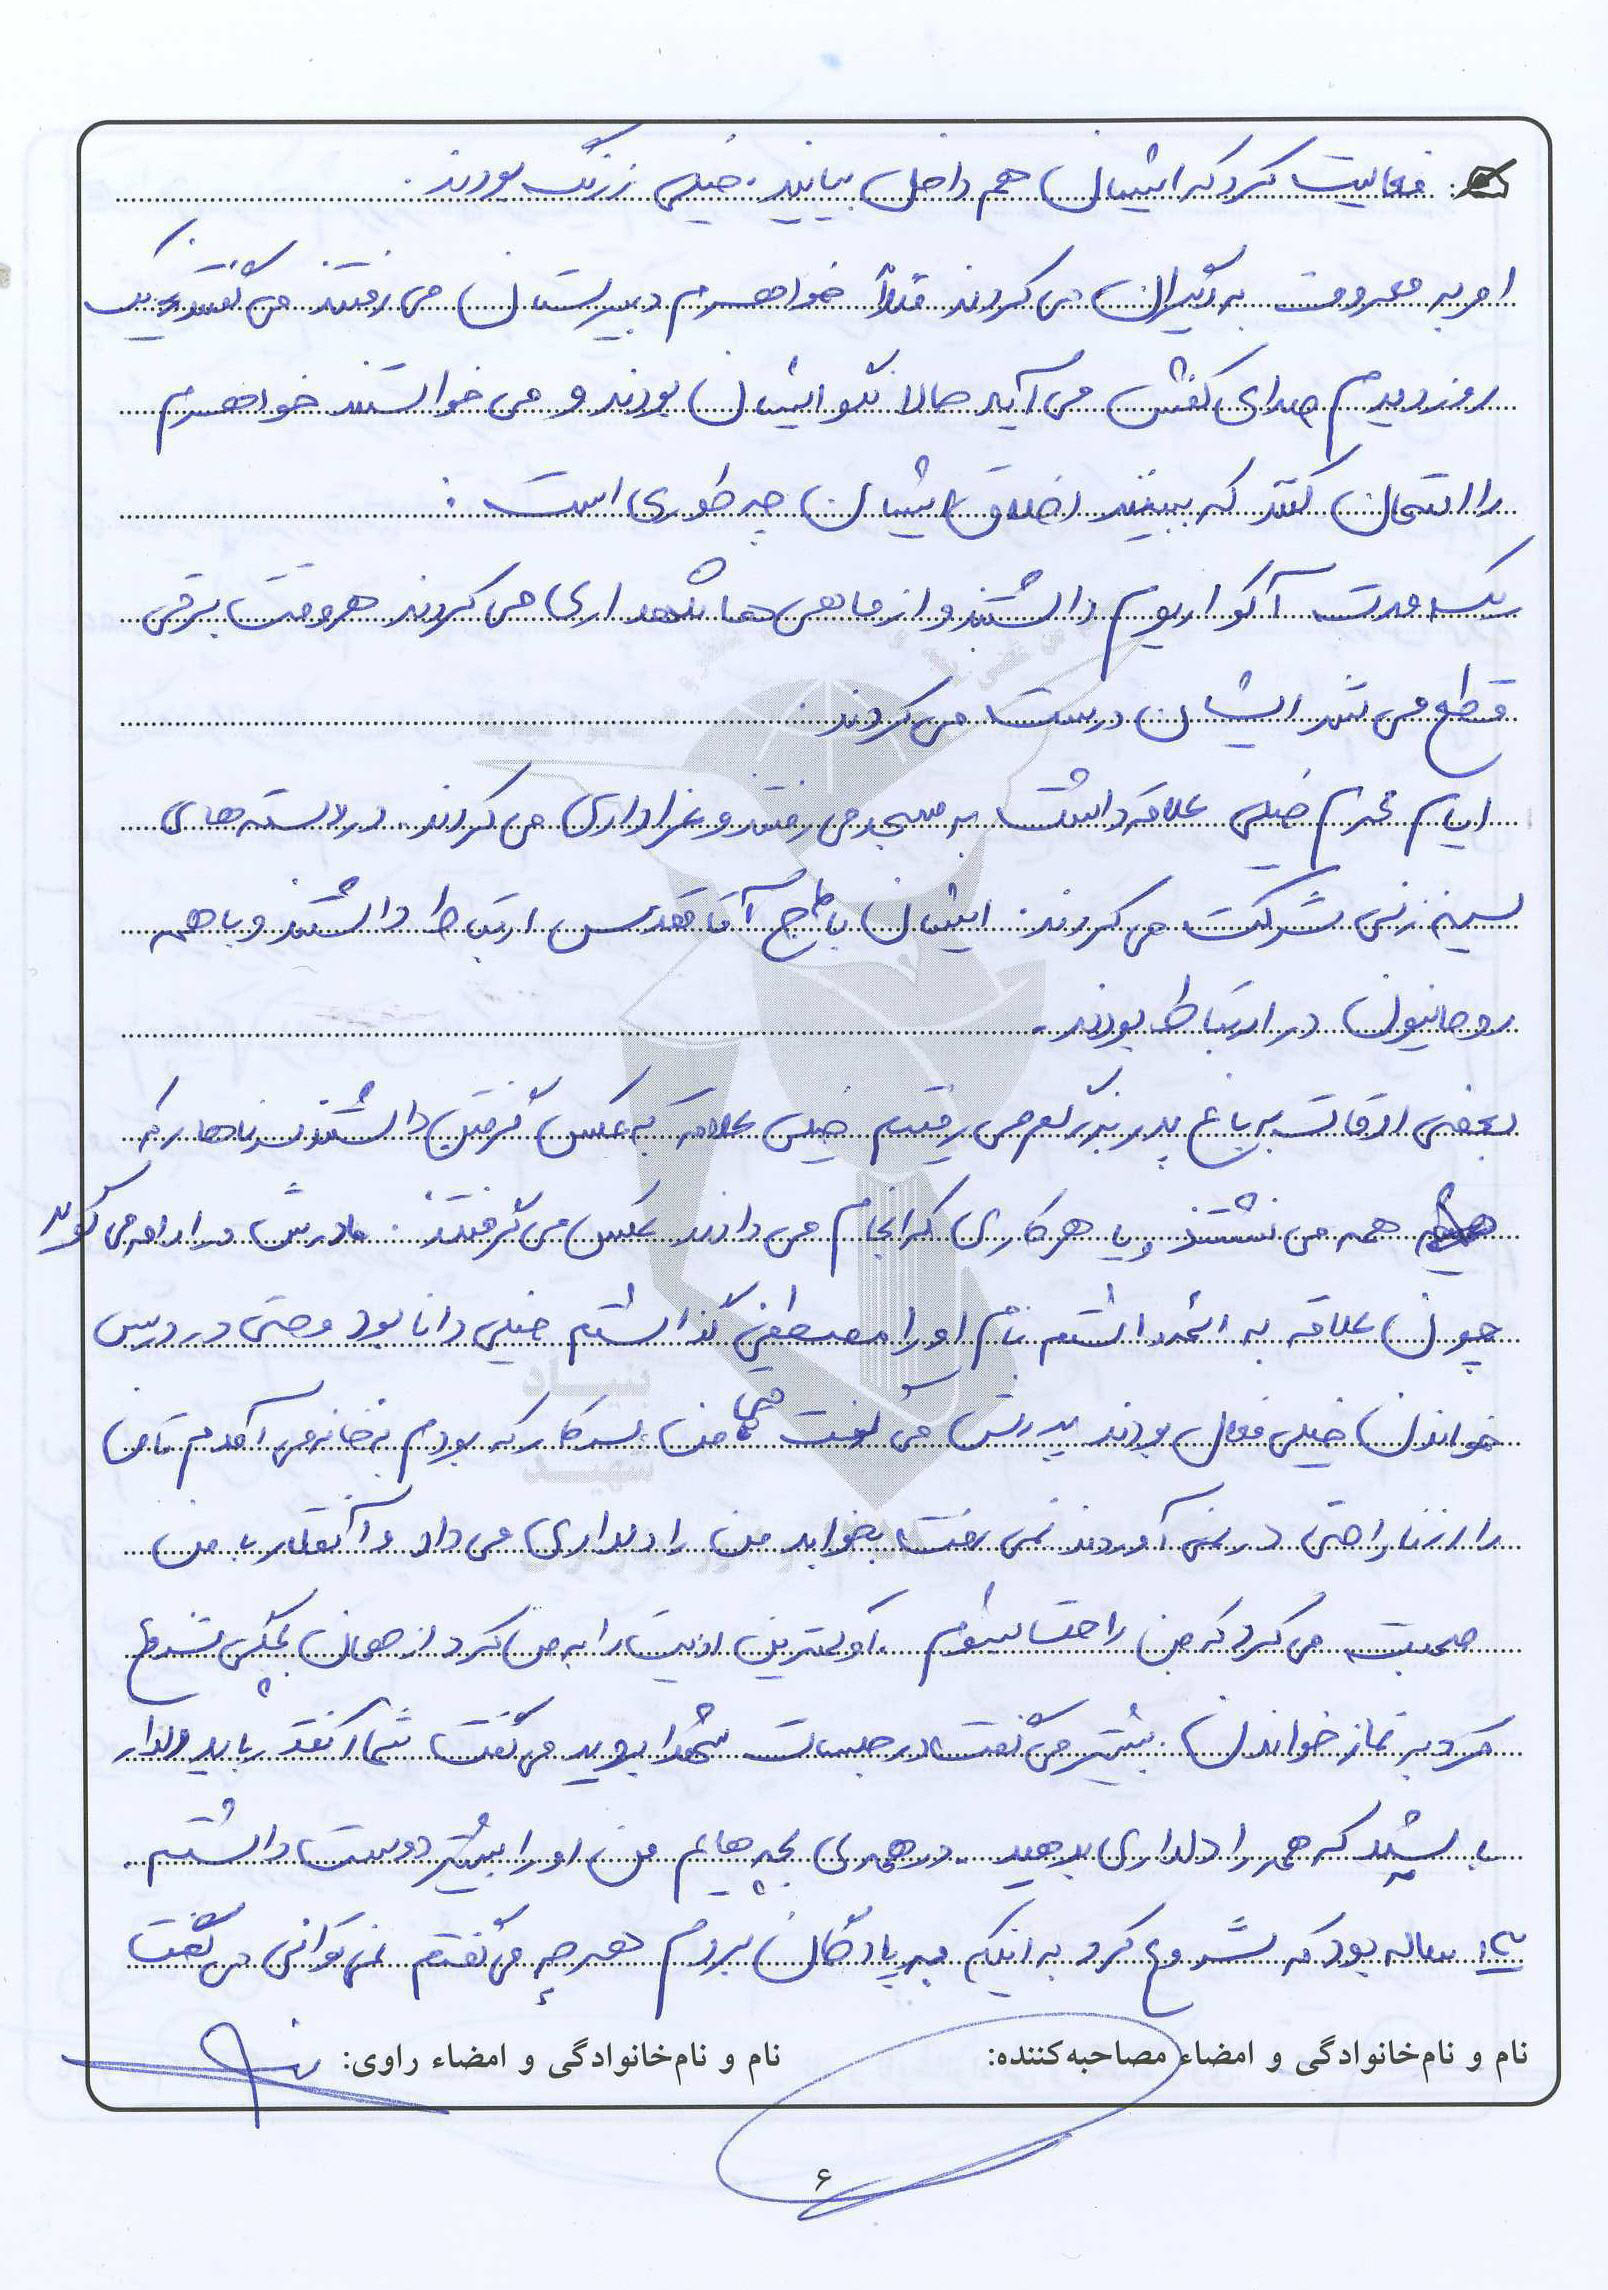 فعالیت کرد که ایشان هم داخل بیایند. خیلی زرنگ بودند.
امر به معروف به دیگران می کردند مثلاً خواهرم دبیرستان می رفتند می گفتند یک
روز دیدم صدای کفش می آید حالا نگو ایشان بودند و می خواستند خواهرم
را امتحان کنند که ببینند اخلاق ایشان چه طوری است.
یک مدت آکواریوم داشتند و از ماهی ها نگهداری می کردند هر وقت برقی
قطع می شد ایشان درست می کردند.
ایام محرم خیلی علاقه داشت به مسجد می رفتند و عزاداری می کردند. در دسته های
سینه زنی شرکت می کردند. ایشان با حاج آقا مقدس ارتباط داشتند و با همه
روحانیون در ارتباط بودند.
بعضی اوقات به باغ پدر بزرگم می رفتیم خیلی علاقه به عکس گرفتن داشتند
همه می نشستند و یا هر کاری که انجام می دادند عکس می گرفتند. مادرش در ادامه می گوید
چون علاقه به ائمه داشتم نام او را مصطفی گذاشتم خیلی دانا بود و حتی در درس
خواندن خیلی فعال بودند پدرش می گفت من سر کار که بودم به خانه می آمدم تا من
را از ناراحتی در نمی آوردند نمی رفت بخوابد من را دلداری می داد و آنقدر با من
صحبت می کرد که من راحت شوم. او کمترین اذیت را به من کرد از همان بچگی شروع
کرد به نماز خواندن. بیشتر می گفت در جلسات شهدا بروید می گفت شما آنقدر باید دلدار
باشید که همه را دلداری بدهید. در همه ی بچه هایم من او را بیشتر دوست داشتم.
ساله بود که شروع کرد به اینکه به پادگان بروم هر چه می گفتم نمی توانی می گفت
نام و نام‌خانوادگی و امضاء مصاحبه‌کننده:
نام و نام‌خانوادگی و امضاء راوی:
۶
بنیاد
شهید